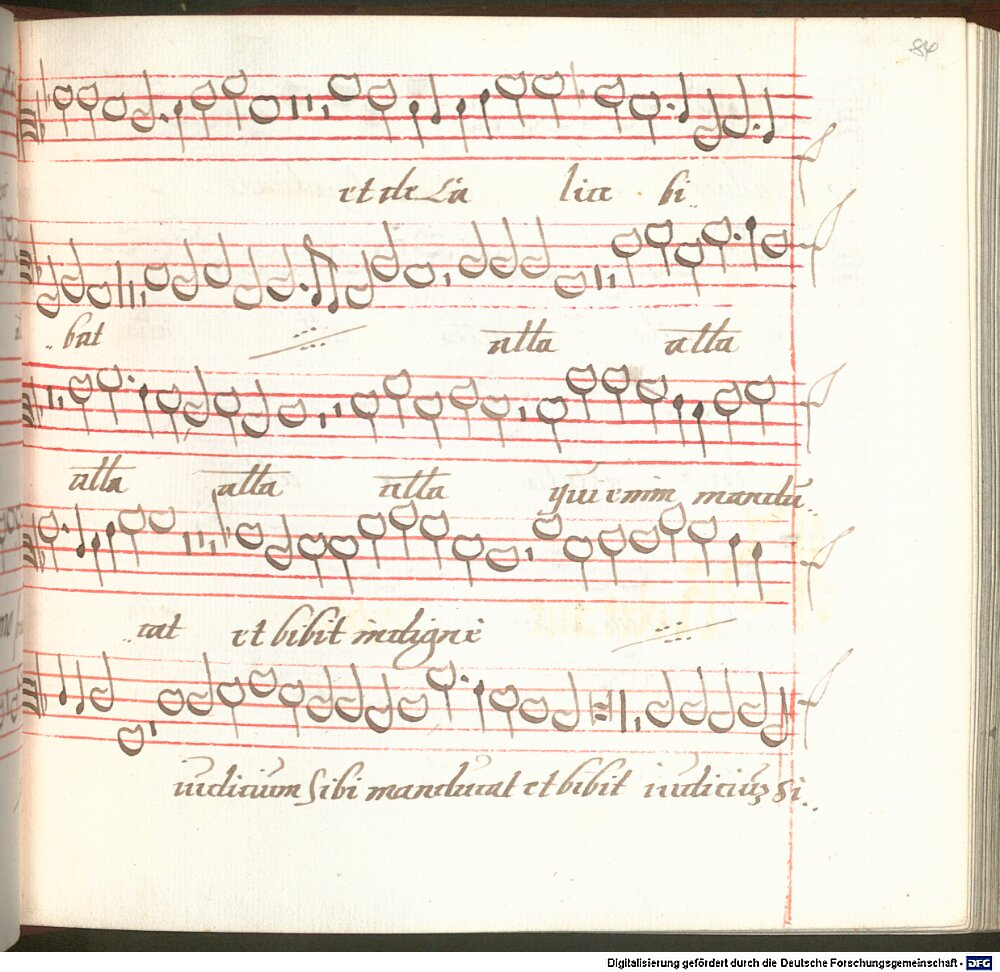 84
et de Ca lice bi..
..bat alla alla
alla alla alla qui enim mandu..
..cat et bibit indigne
iudicium sibi manducat et bibit iudiciu si..
Digitalisierung gefördert durch die Deutsche Forschungsgemeinschaft - DFG